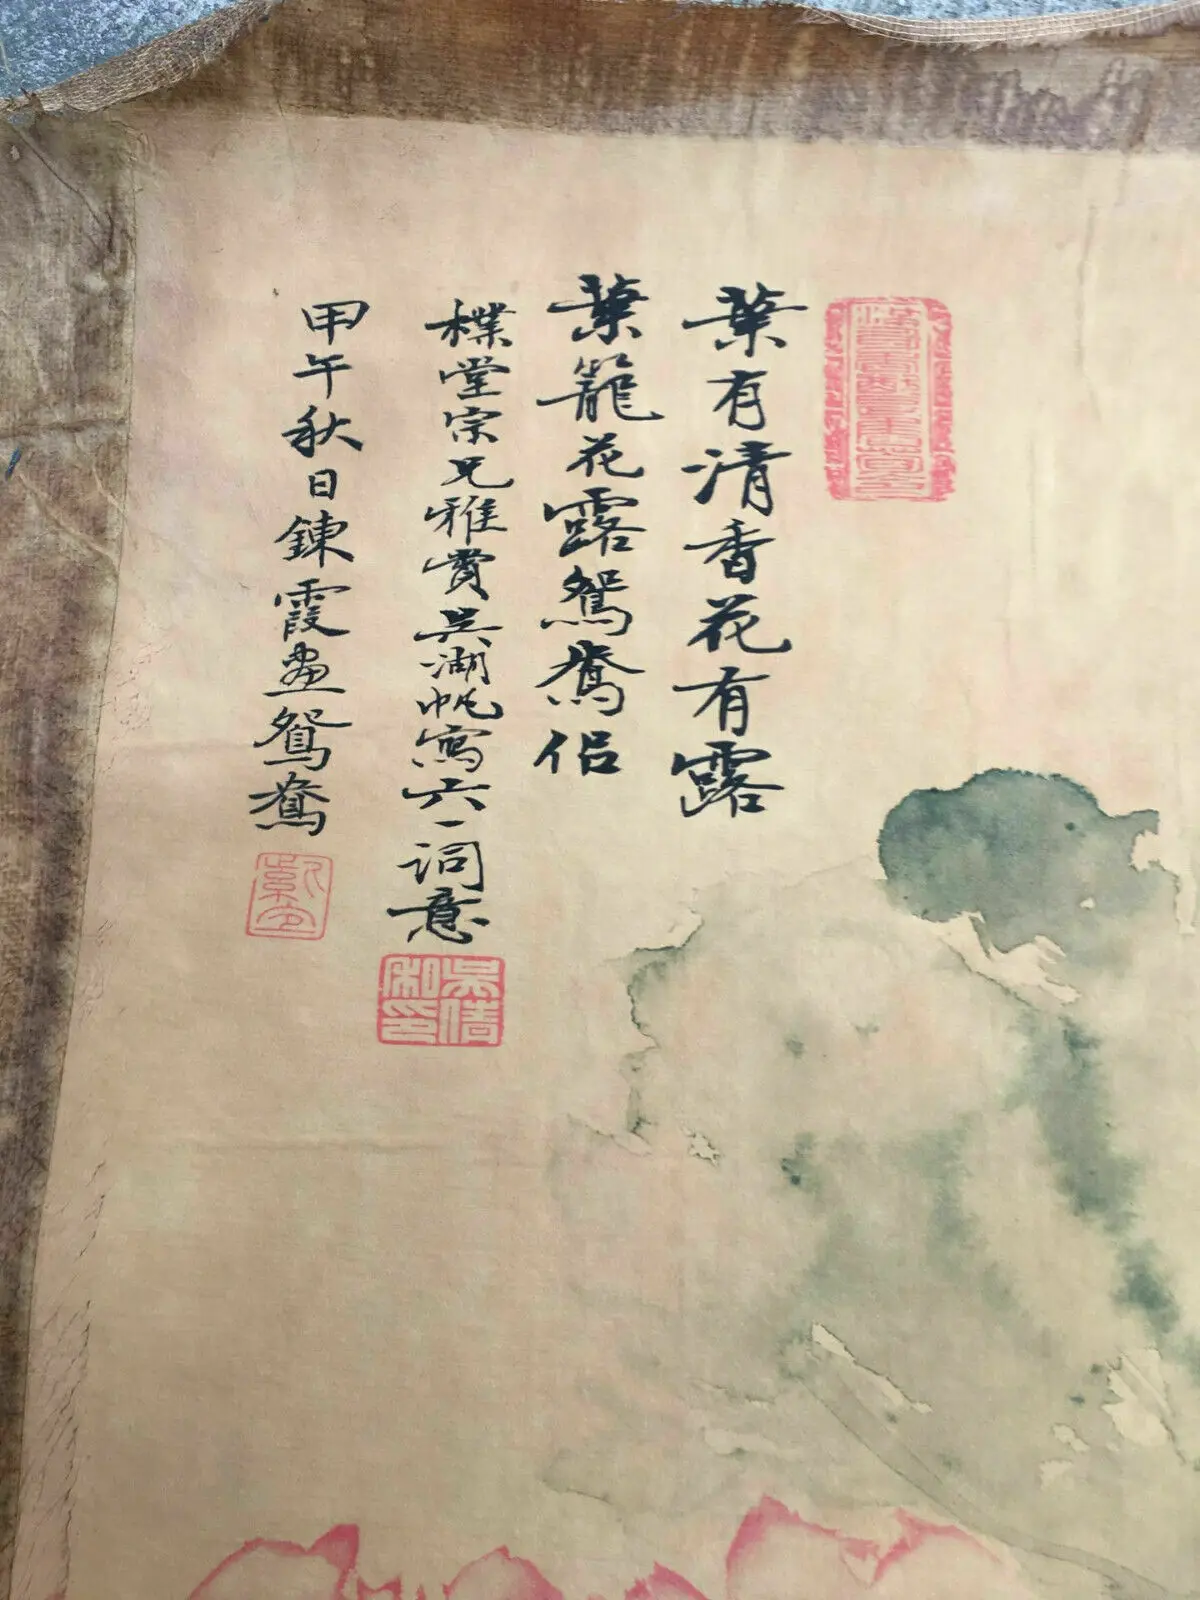 葉有清香花有露
葉籠花露鴛鴦侣
樸堂宗兄雅賞吳湖帆寫六一詞意
甲午秋日鍊霞畫鴛鴦
吳倩
私印